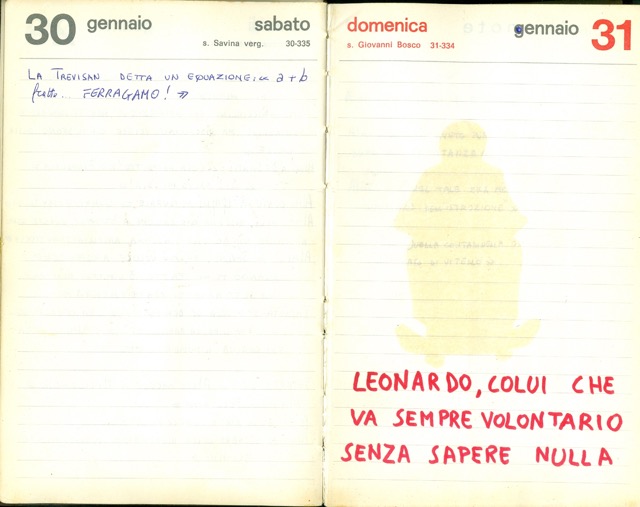 30 gennaio sabato
s. Savina verg. 30-335
LA TREVISAN DETTA UN EQUAZIONE: « a+b
fratto... FERRAGAMO! »
domenica gennaio 31
s. Giovanni Bosco 31-334
LEONARDO, COLUI CHE
VA SEMPRE VOLONTARIO
SENZA SAPERE NULLA